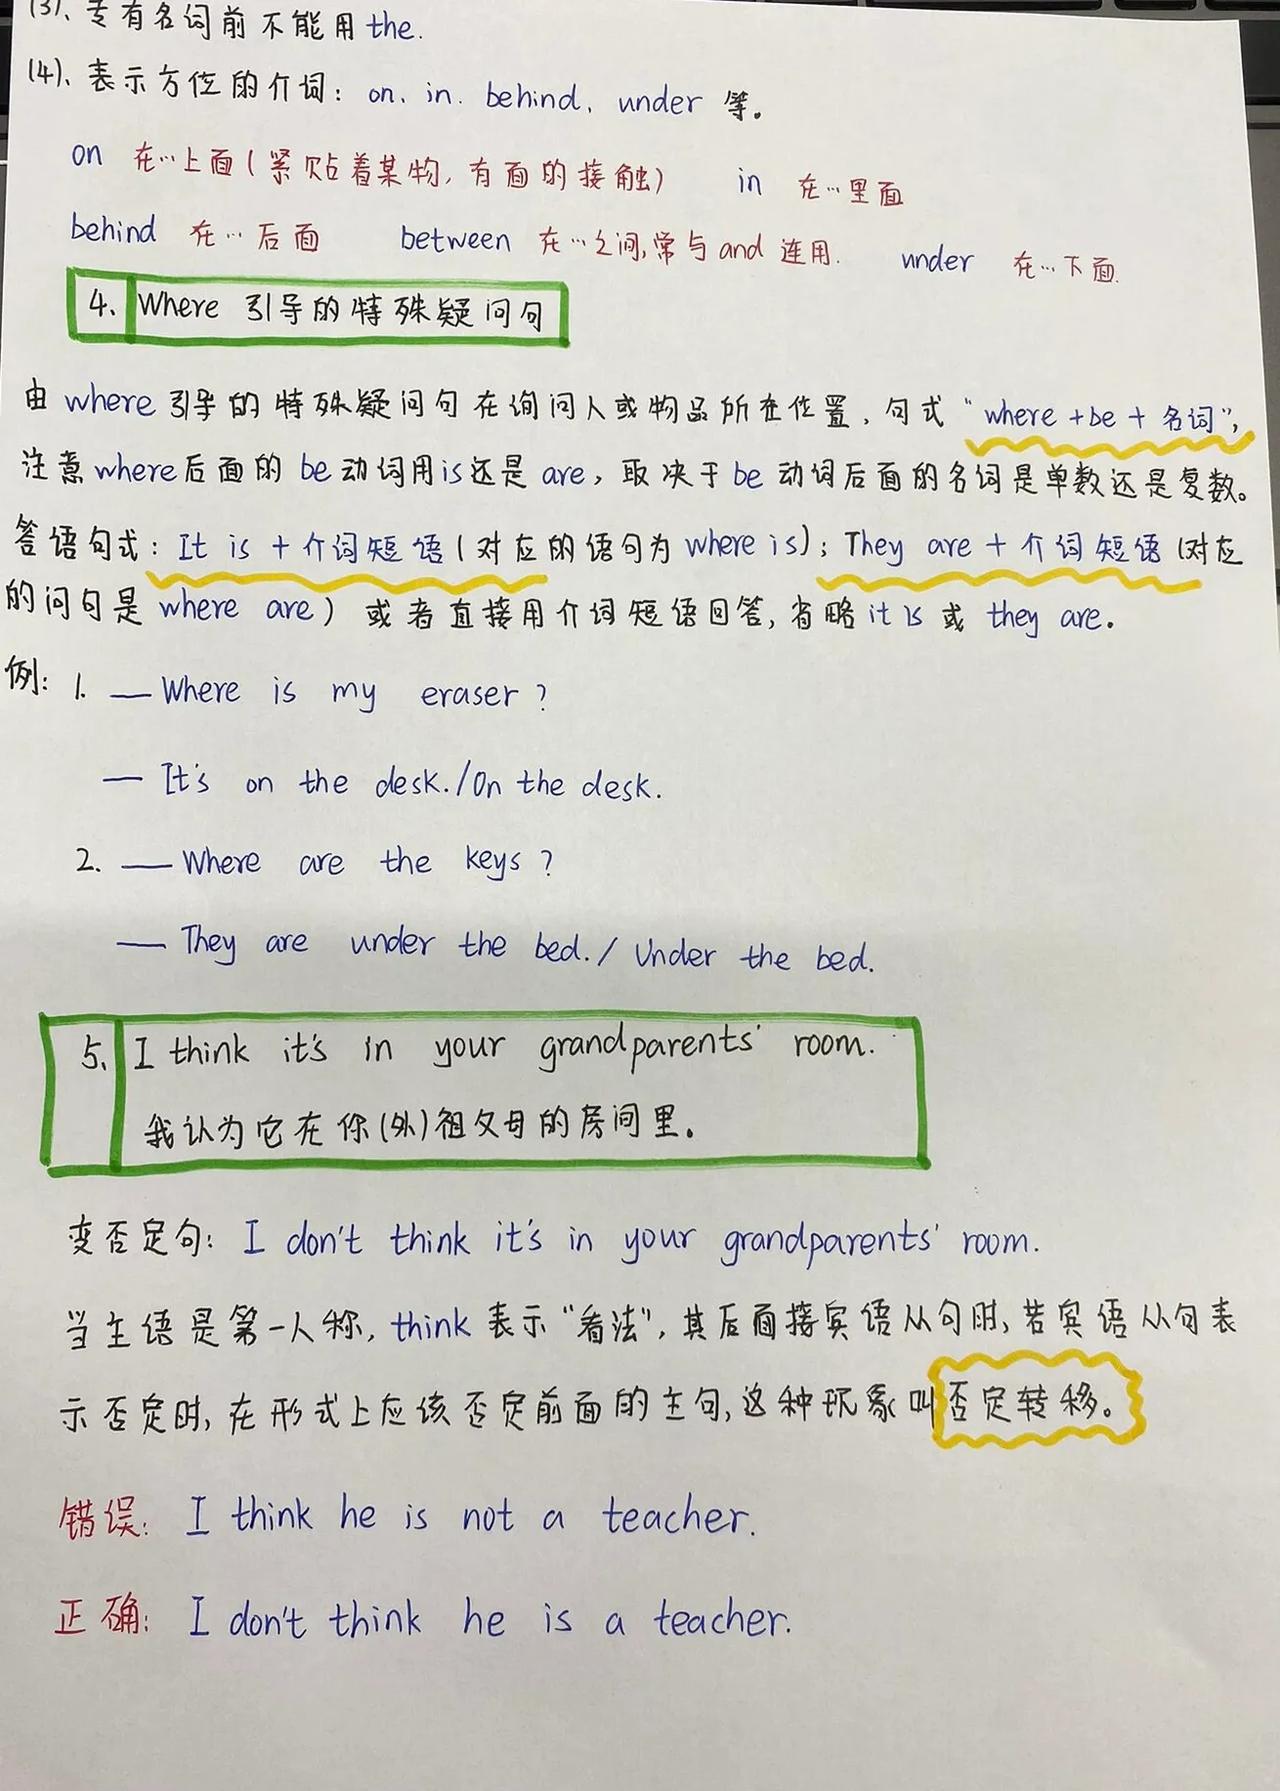 (3)、专有名词前不能用the.
(4)、表示方位的介词：on、in、behind、under 等。
on 在…上面(紧贴着某物,有面的接触) in 在…里面
behind 在…后面 between 在…之间,常与and 连用. under 在…下面.
4. Where 引导的特殊疑问句
由where引导的特殊疑问句在询问人或物品所在位置，句式“where +be + 名词”,
注意where后面的be动词用is还是are，取决于be动词后面的名词是单数还是复数。
答语句式：It is + 介词短语(对应的语句为where is)；They are + 介词短语(对应
的问句是where are) 或者直接用介词短语回答,省略it is 或 they are.
例：1. — Where is my eraser?
— It's on the desk./On the desk.
2. — Where are the keys?
— They are under the bed./ Under the bed.
5. I think it's in your grandparents' room.
我认为它在你(外)祖父母的房间里。
变否定句：I don't think it's in your grandparents' room.
当主语是第一人称, think 表示“看法”,其后面接宾语从句时,若宾语从句表
示否定时,在形式上应该否定前面的主句,这种现象叫否定转移。
错误：I think he is not a teacher.
正确：I don't think he is a teacher.